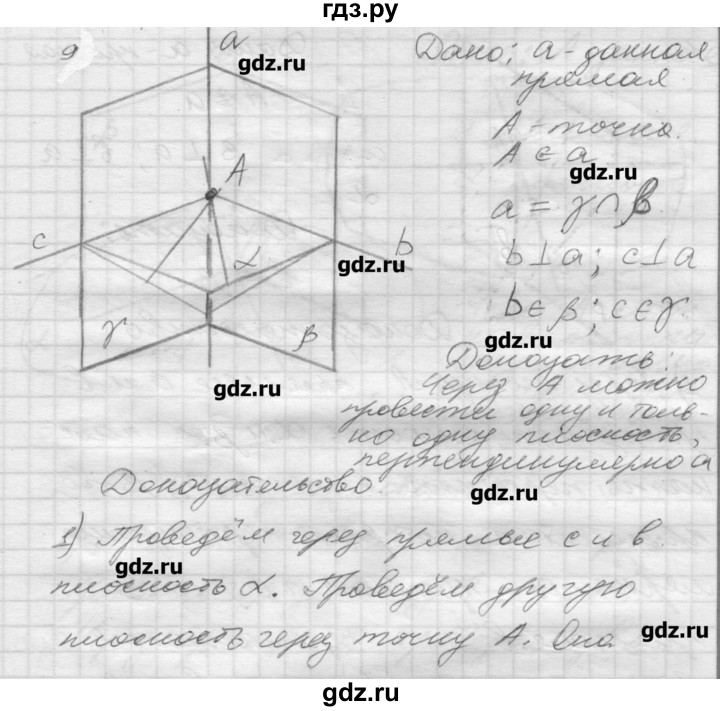 гдз.ру
9
a
gdz.ru
Дано: a - данная
прямая
A - точка.
A ∈ a
gdz.ru
A
a = γ ∩ β
c
α
b
gdz.ru
b ⊥ a; c ⊥ a
b ∈ β; c ∈ γ.
γ
β
gdz.ru
gdz.ru
Доказать:
Через A можно
провести одну и толь-
ко одну плоскость,
перпендикулярно a
Доказательство.
gdz.ru
1) Проведём через прямые c и b
gdz.ru
плоскость α. Проведём другую
плоскость через точку A. Она
gdz.ru
gdz.ru